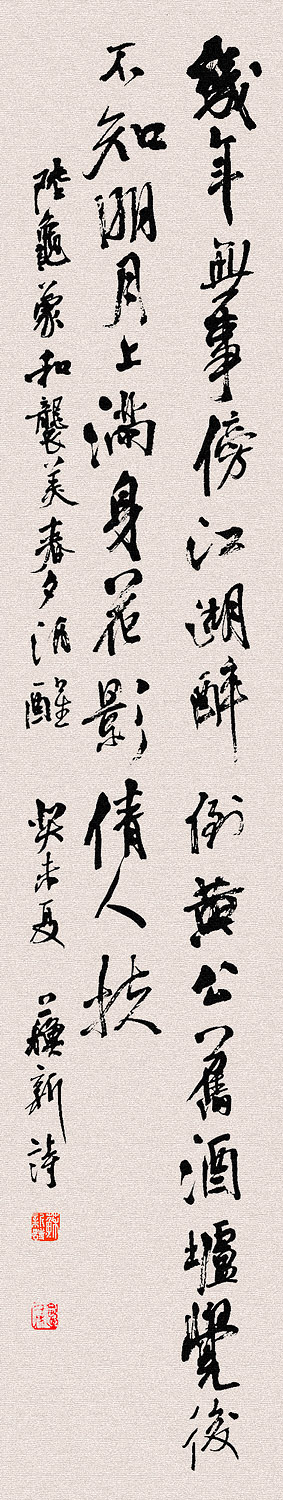 幾年無事傍江湖醉倒黃公舊酒壚覺後
不知明月上滿身花影倩人扶
陸龜蒙和襲美春夕酒醒 癸未夏 蘇新詩